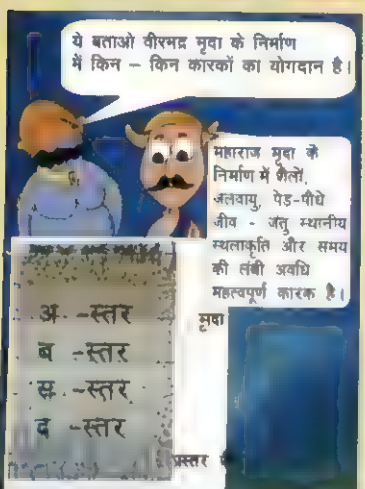 ये बताओ वीरभद्र मृदा के निर्माण
में किन – किन कारकों का योगदान है।
महाराज मृदा के
निर्माण में शैलों,
जलवायु, पेड़-पौधे
जीव - जंतु स्थानीय
स्थलाकृति और समय
की लंबी अवधि
महत्वपूर्ण कारक है।
मृदा
अ -स्तर
ब -स्तर
स -स्तर
द -स्तर
प्रस्तर